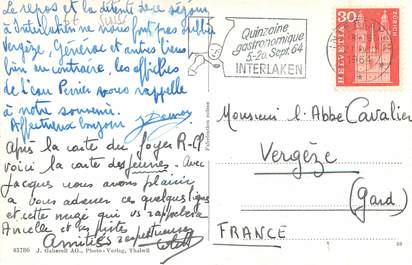 Le repos et la détente de ce séjour
à Interlaken ne nous font pas oublier
Vergèze, Générac et autres lieux
bien au contraire, les affiches
de l'eau Perrier nous rappelle
à notre souvenir.
Affectueux bonjour
Après la carte du foyer R-P
voici la carte des jeunes. Avec
Jacques nous avons plaisir
à vous adresser ces quelques lignes
et cette neige qui vs rappelera
Ancelle et les pistes
Amitiés respectueuses
45786 J. Gaberell AG., Photo-Verlag, Thalwil
Quinzaine
gastronomique
5-20. Sept. 64
INTERLAKEN
30
HELVETIA
ZÜRICH
1964
Monsieur l'Abbé Cavalier
Vergèze
(Gard)
FRANCE